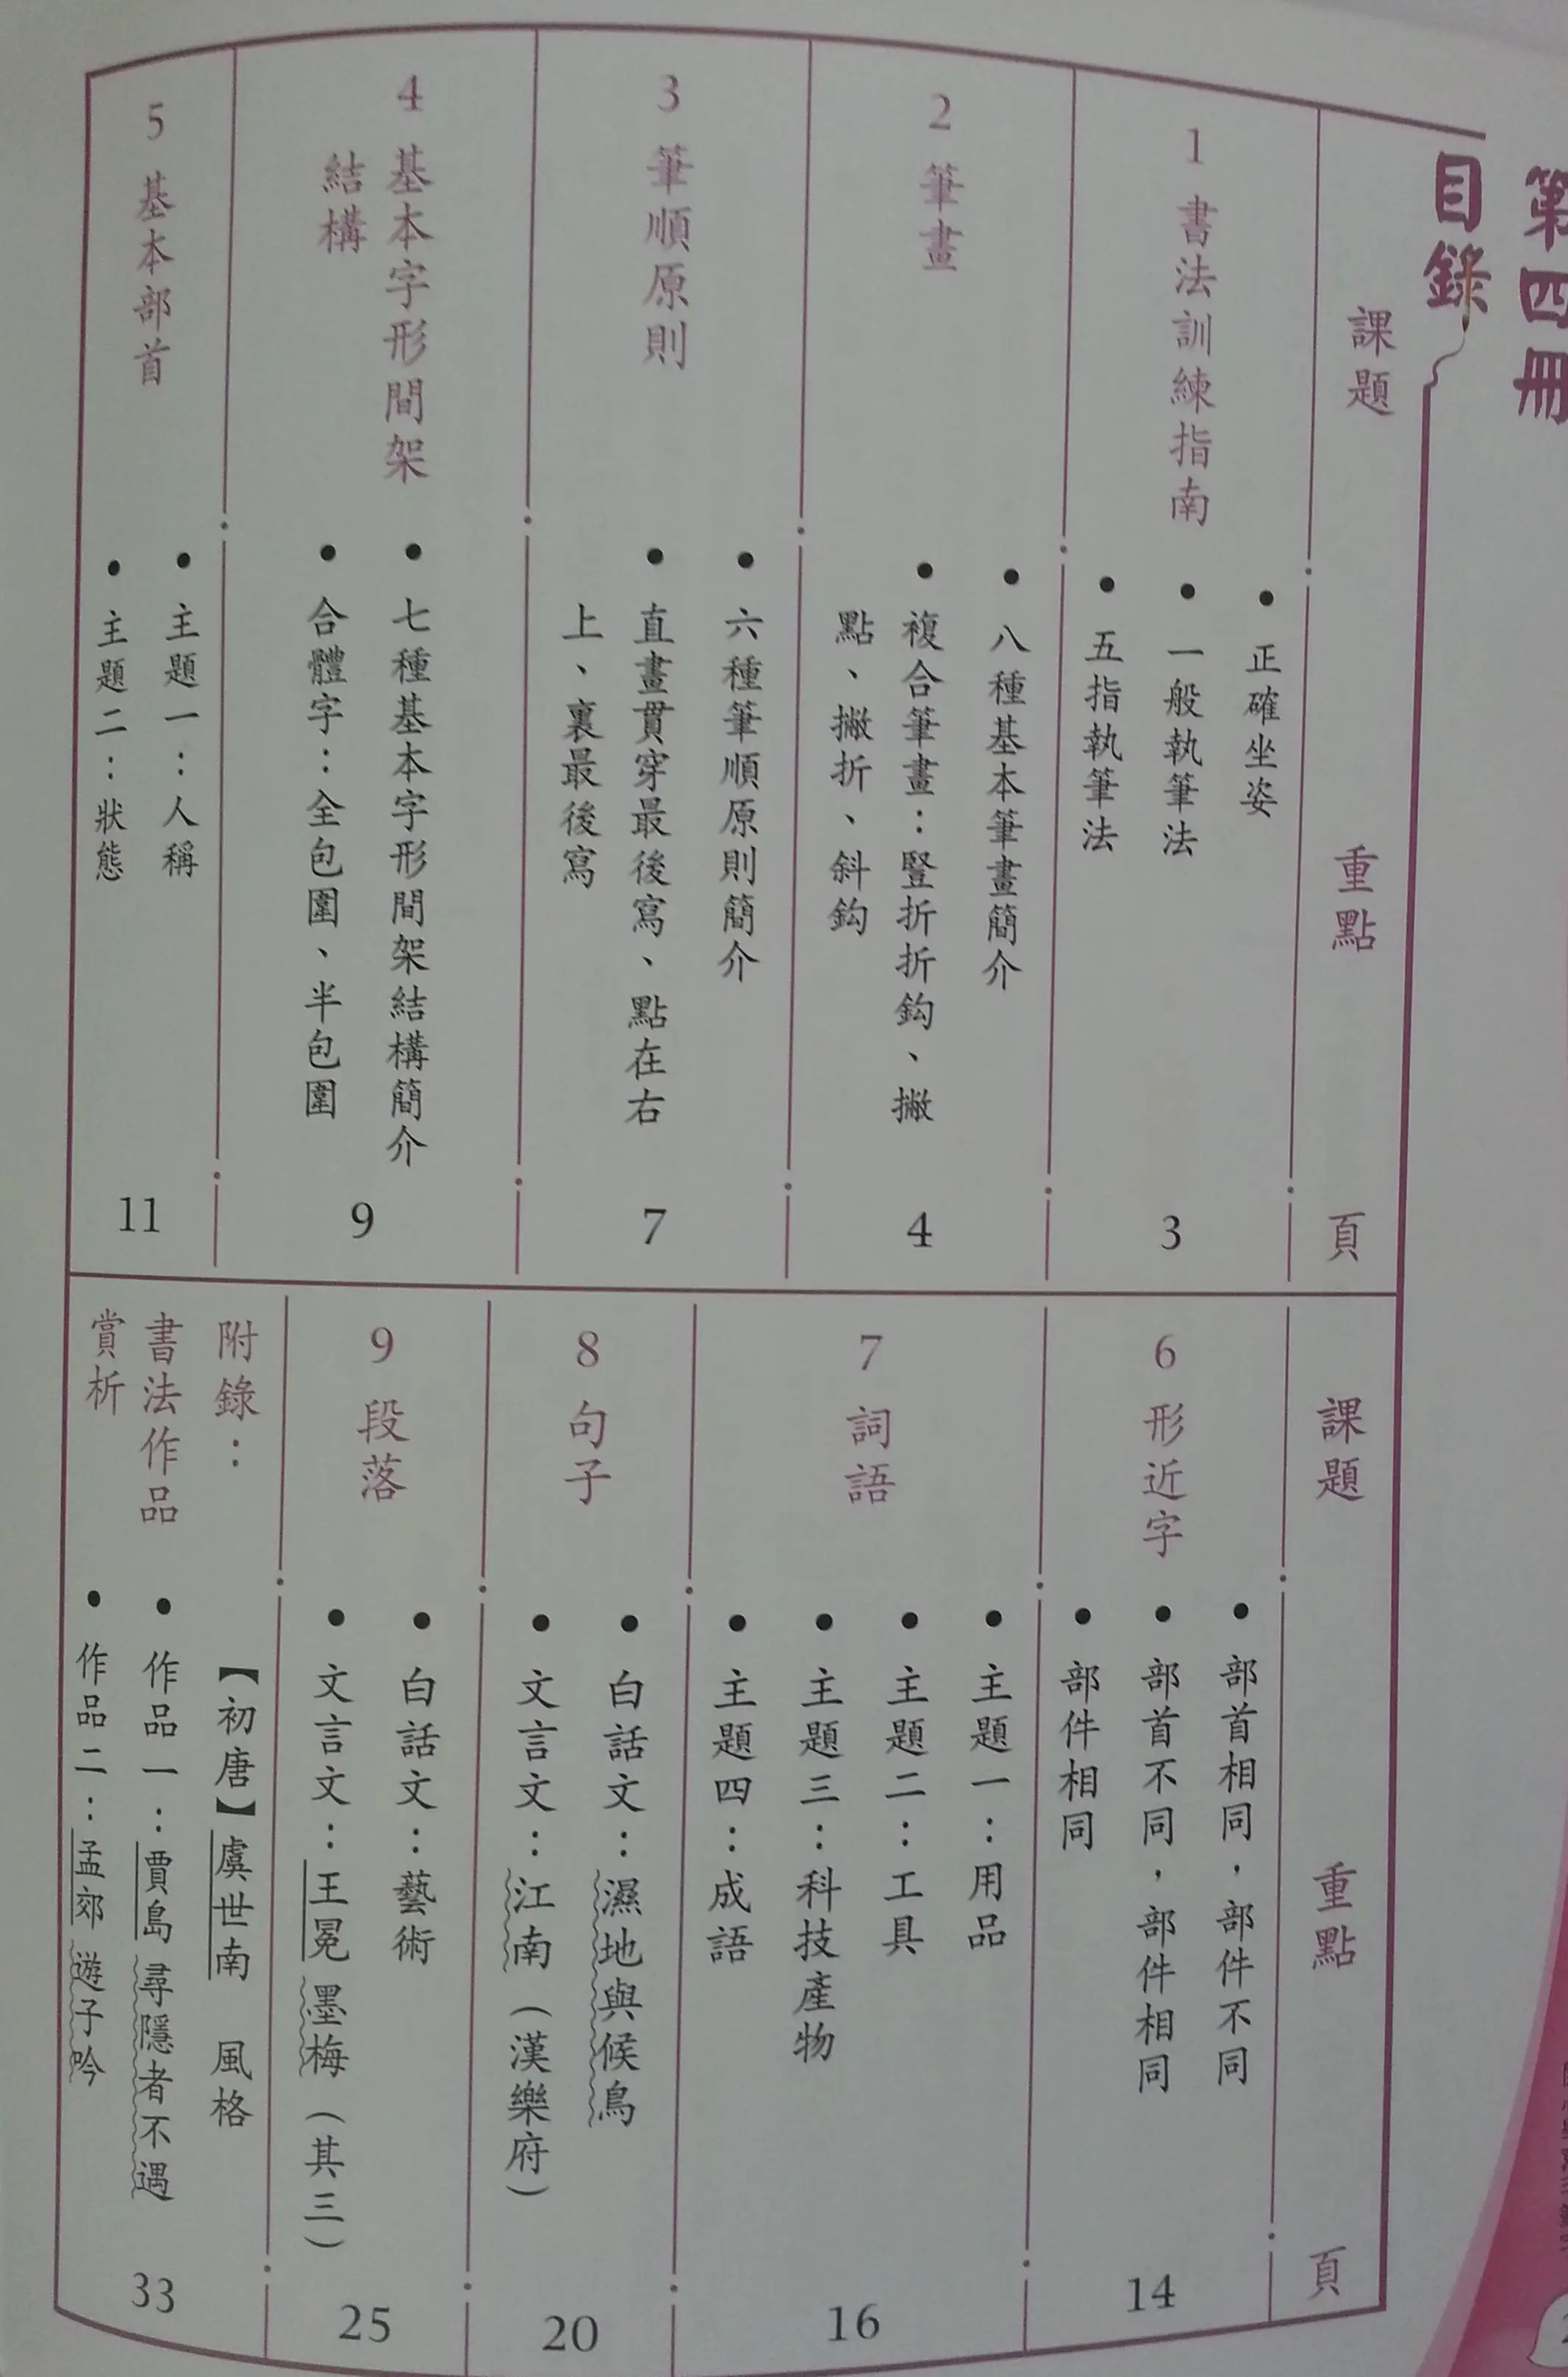 第四冊
目錄
課題
重點
頁
1 書法訓練指南
• 正確坐姿
• 一般執筆法
• 五指執筆法
3
2 筆畫
• 八種基本筆畫簡介
• 複合筆畫：豎折折鈎、撇
點、撇折、斜鈎
4
3 筆順原則
• 六種筆順原則簡介
• 直畫貫穿最後寫、點在右
上、裏最後寫
7
4 基本字形間架
結構
• 七種基本字形間架結構簡介
• 合體字：全包圍、半包圍
9
5 基本部首
• 主題一：人稱
• 主題二：狀態
11
課題
重點
頁
6 形近字
• 部首相同，部件不同
• 部首不同，部件相同
• 部件相同
14
7 詞語
• 主題一：用品
• 主題二：工具
• 主題三：科技產物
• 主題四：成語
16
8 句子
• 白話文：濕地與候鳥
• 文言文：江南（漢樂府）
20
9 段落
• 白話文：藝術
• 文言文：王冕 墨梅（其三）
25
附錄：
書法作品
賞析
【初唐】虞世南 風格
• 作品一：賈島 尋隱者不遇
• 作品二：孟郊 遊子吟
33